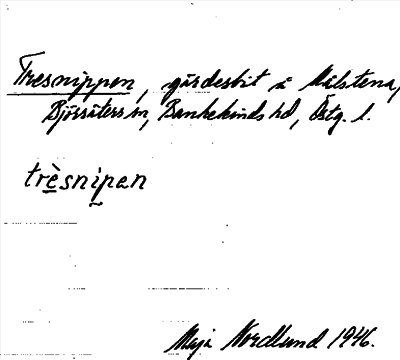 Tresnippen, gärdesbit å Målstena,
Björsäters sn, Bankekinds hd, Östg. l.
trèsnipen
Maja Nordlund 1946.